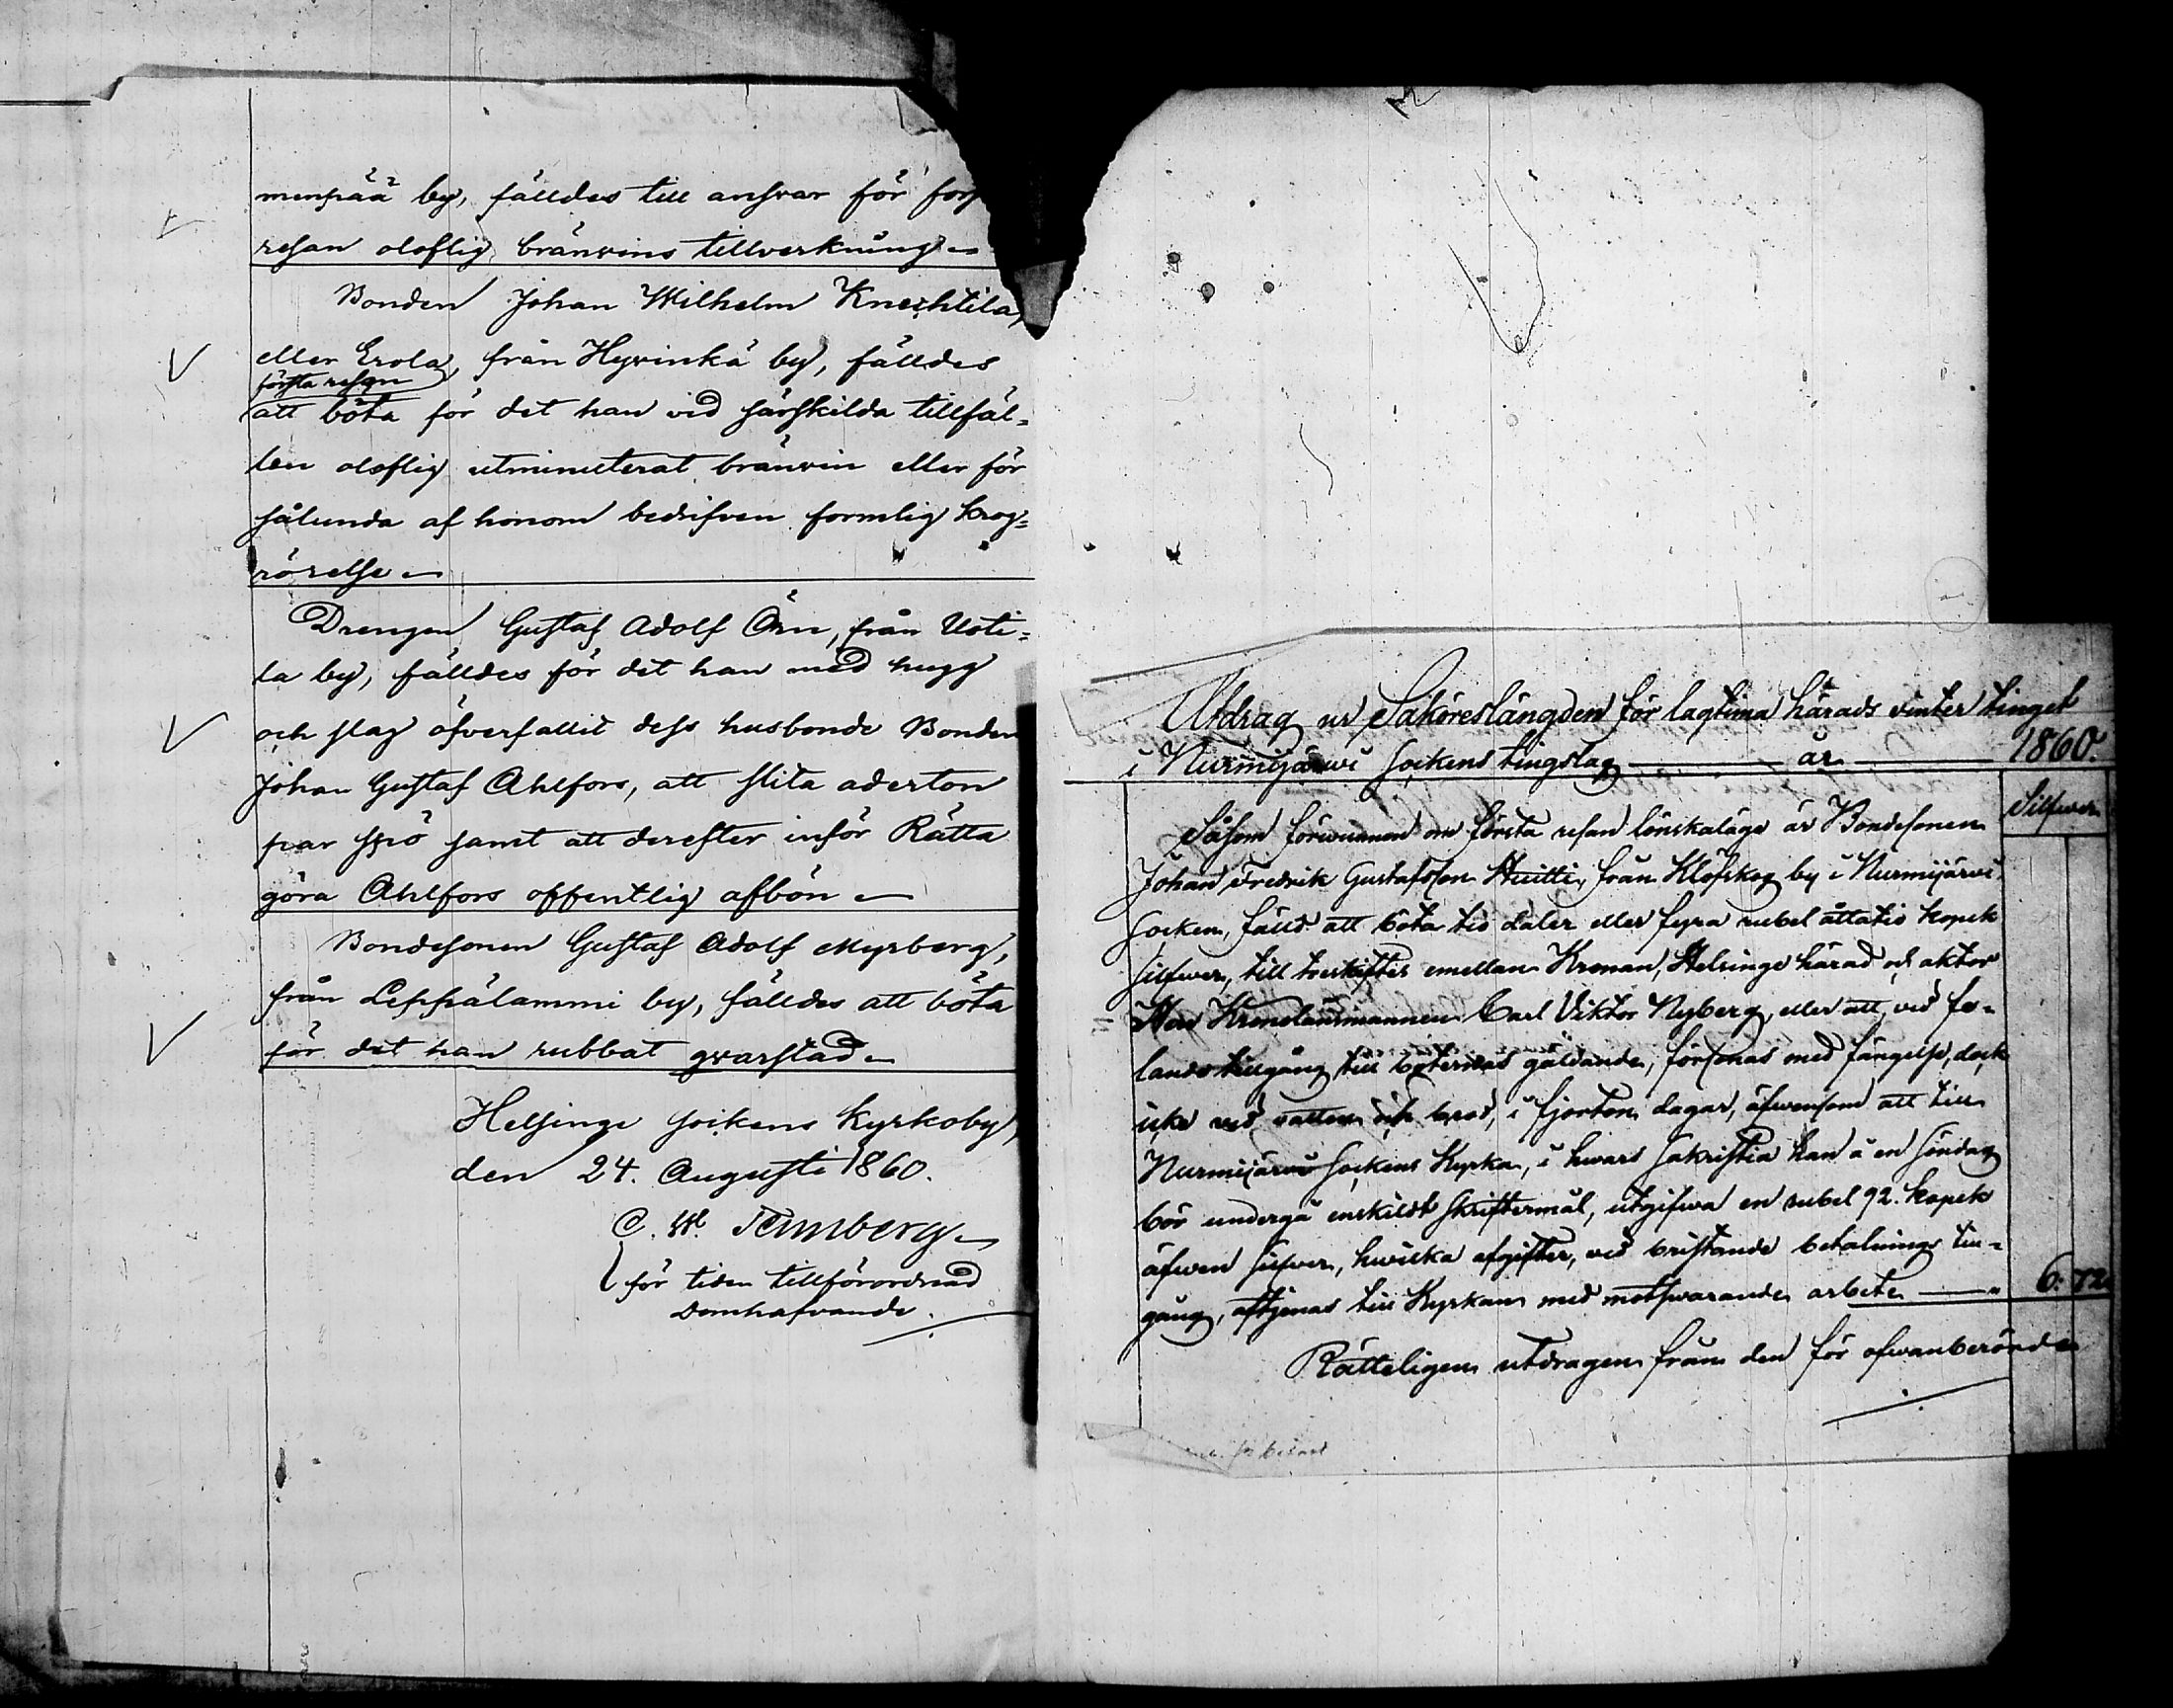 menpää by, fälldes till ansvar för för
resan oloflig bränvins tillverkning.
Bonden Johan Wilhelm Knechtila,
eller Erola, från Hyvinkä by, fälldes
första resan
att böta för det han vid särskilda tillfäl=
len oloflig utminuterat bränvin eller för
sålunda af honom bedrifven formlig krog=
rörelse
Drengen Gustaf Adolf Örn, från Uoti=
la by, fälldes för det han med hugg
och slag öfverfallit dess husbonde Bonden
Johan Gustaf Ahlfors, att slita aderton
par spö samt att derefter inför Rätta
göra Ahlfors offentlig afbön
Bondesonen Gustaf Adolf Myrberg,
från Leppälammi by, fälldes att böta
för det han rubbat qvarstad
Helsinge sockens Kyrkoby,
den 24. Augusti 1860.
C. W. Tamberg
för tiden tillförordnad
Domhafvande.
Utdrag ur Saköreslängden för lagtima härads vinter tinget
i Nurmijärvi Sockens tingslag år 1860.
Silfwer
Såsom förwunnen om första resan lönskaläge är Bondesonen
Johan Fredrik Gustafsson Huitti, från Klöfskog by i Nurmijärvi
Socken, fälld att böta tio daler eller fyra rubel åttatio kopek
silfwer, till treskiftes emellan Kronan, Helsinge härad och aktor
Herr Kronolänsmannen Carl Viktor Nyberg, eller att, vid fe=
lande tillgång till böternas gäldande, försonas med fängelse, dock
icke vid vatten och bröd, i fjorton dagar, äfwensom att till
Nurmijärvi Sockens Kyrka, i hwars Sakristia han å en Söndag
bör undergå enskildt Skriftermål, utgifwa en rubel 92. kopek
äfwen silfwer, hwilka afgifter, vid bristande betalnings till=
gång, aftjenas till Kyrkan med motswarande arbete — " 6: 72
Rätteligen utdragen från den för ofwanberörde